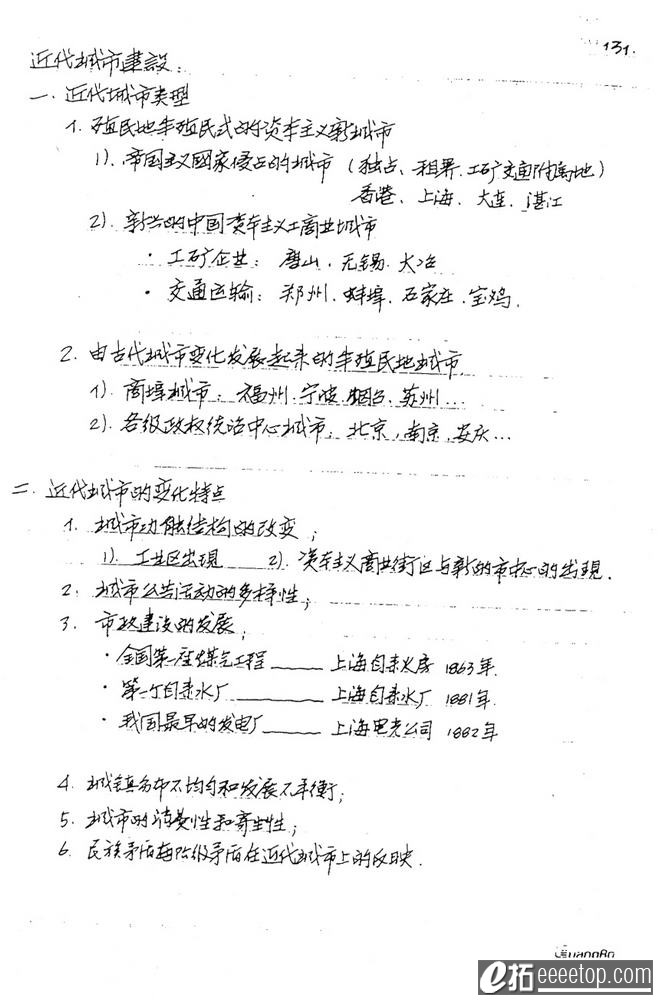 131.
近代城市建設:
一. 近代城市类型
1. 殖民地半殖民式的资本主义新城市
1). 帝国主义國家侵占的城市 (独占、租界.工矿交通附属地)
香港、上海、大连、湛江
2). 新兴的中国资本主义工商业城市
· 工矿企业: 唐山. 无锡. 大冶
· 交通运输: 郑州. 蚌埠. 石家庄. 宝鸡.
2. 由古代城市变化发展起来的半殖民地城市.
1). 商埠城市: 福州.宁波.烟台.苏州...
2). 各级政权统治中心城市: 北京, 南京, 安庆...
二. 近代城市的变化特点
1. 城市功能结构的改变;
1). 工业区出現 2). 资本主义商业街区与新的市中心的出現.
2. 城市公共活动的多样性;
3. 市政建设的发展;
· 全国第一座煤气工程 —— 上海自来火房 1863年.
· 第一个自来水厂 —— 上海自来水厂 1881年.
· 我国最早的发电厂 —— 上海电光公司 1882年
4. 城镇分布不均匀和发展不平衡;
5. 城市的消费性和寄生性;
6. 民族矛盾与阶级矛盾在近代城市上的反映.
GuangBo
e拓 eeeetop.com